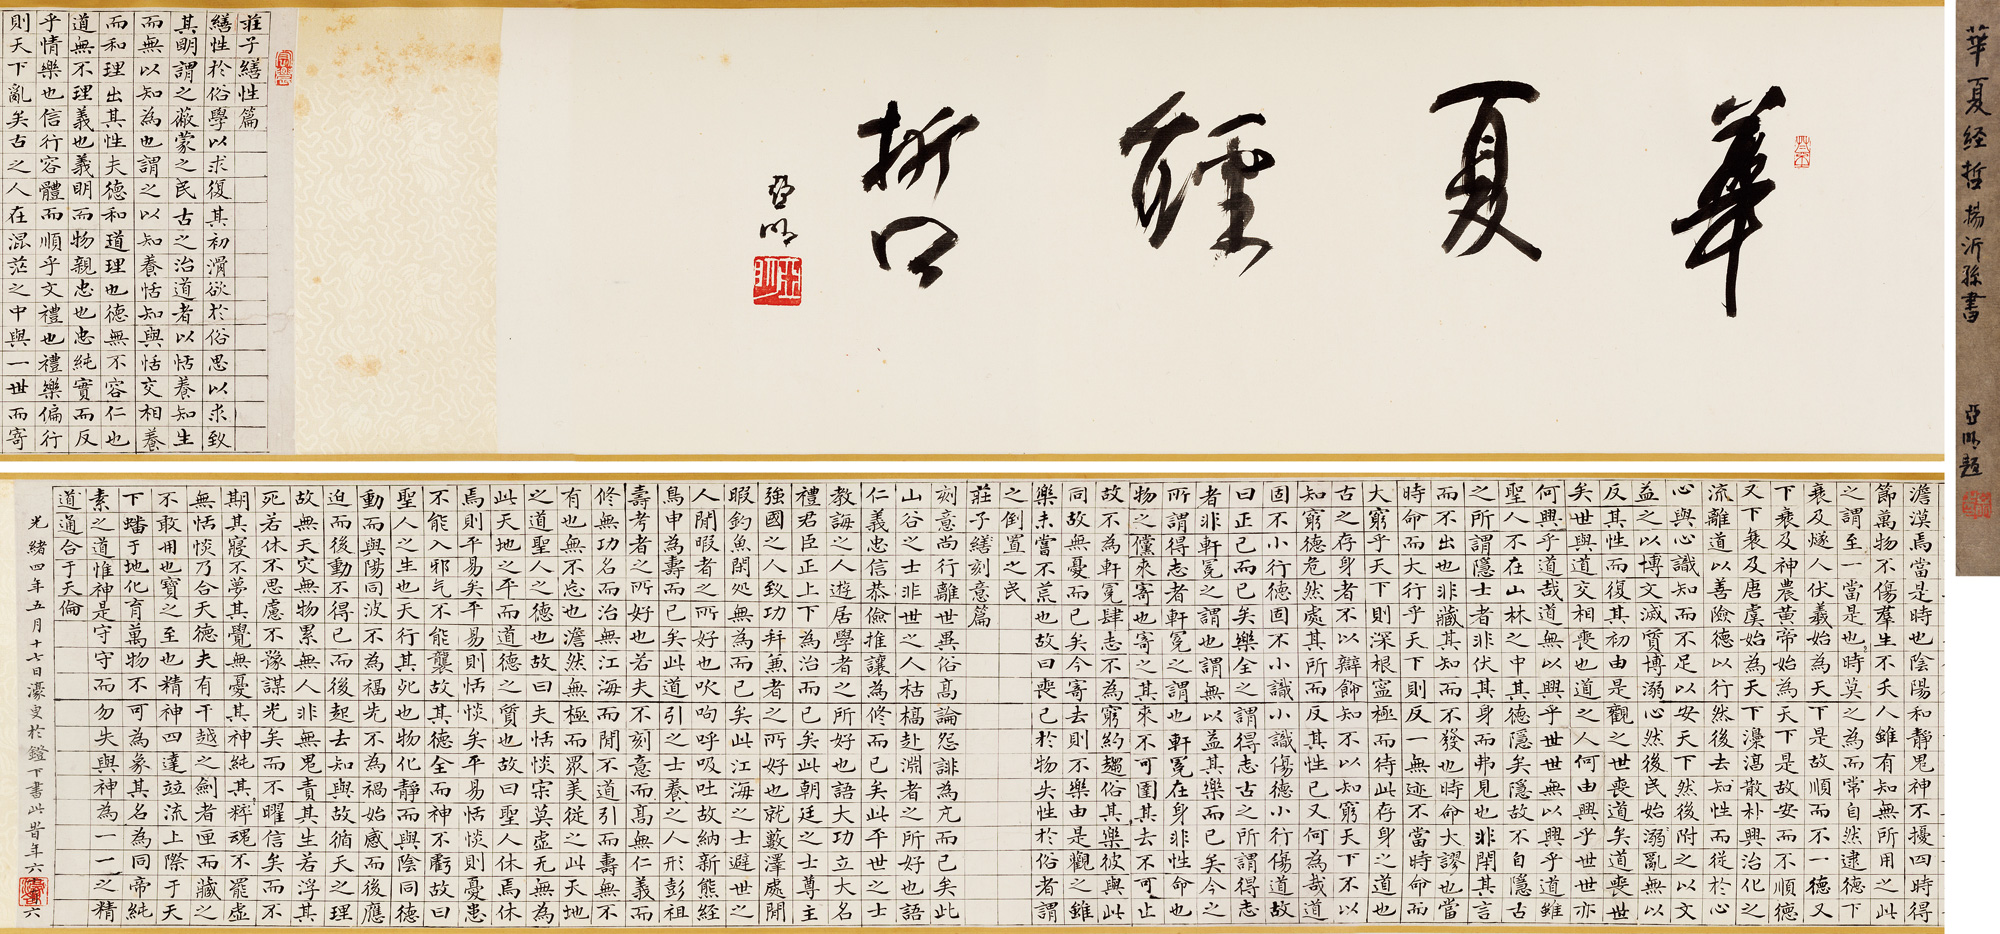 華夏经哲 楊沂孫書 亞明題
華夏經哲
亞明
莊子繕性篇
繕性於俗學以求復其初滑欲於俗思以求致
其明謂之蔽蒙之民古之治道者以恬養知生
而無以知為也謂之以知養恬知與恬交相養
而和理出其性夫德和道理也德無不容仁也
道無不理義也義明而物親忠也忠純實而反
乎情樂也信行容體而順乎文禮也禮樂偏行
則天下亂矣古之人在混茫之中與一世而寄
澹漠焉當是時也陰陽和靜鬼神不擾四時得
節萬物不傷羣生不夭人雖有知無所用之此
之謂至一當是也時莫之為而常自然逮德下
衰及燧人伏羲始為天下是故順而不一德又
下衰及神農黃帝始為天下是故安而不順德
又下衰及唐虞始為天下散朴興治化之
流離道以善險德以行然後去知性而從於心
心與心識知而不足以安天下然後附之以文
益之以博文滅質博溺心然後民始溺亂無以
反其性而復其初由是觀之世喪道矣道喪世
矣世與道交相喪也道之人何由興乎世世亦
何興乎道哉道無以興乎世世無以興乎道雖
聖人不在山林之中其德隱矣隱故不自隱古
之所謂隱士者非伏其身而弗見也非閉其言
而不出也非藏其知而不發也時命大謬也當
時命而大行乎天下則反一無迹不當時命而
大窮乎天下則深根寧極而待此存身之道也
古之存身者不以辯飾知不以知窮天下不以
知窮德危然處其所而反其性已又何為哉道
固不小行德固不小識小識傷德小行傷道故
曰正己而已矣樂全之謂得志古之所謂得志
者非軒冕之謂也謂無以益其樂而已矣今之
所謂得志者軒冕之謂也軒冕在身非性命也
物之儻來寄也寄之其來不可圉其去不可止
故不為軒冕肆志不為窮約趨俗其樂彼與此
同故無憂而已矣今寄去則不樂由是觀之雖
樂未嘗不荒也故曰喪己於物失性於俗者謂
之倒置之民
莊子繕刻意篇
刻意尚行離世異俗高論怨誹為亢而已矣此
山谷之士非世之人枯槁赴淵者之所好也語
仁義忠信恭儉推讓為修而已矣此平世之士
教誨之人遊居學者之所好也語大功立大名
禮君臣正上下為治而已矣此朝廷之士尊主
強國之人致功并兼者之所好也就藪澤處閒
暇釣魚閒處無為而已矣此江海之士避世之
人閒暇者之所好也吹呴呼吸吐故納新熊經
鳥申為壽而已矣此道引之士養之人形彭祖
壽考者之所好也若夫不刻意而高無仁義而
修無功名而治無江海而閒不道引而壽無不
有也無不忘也澹然無極而眾美從之此天地
之道聖人之德也故曰夫恬惔宗莫虛无無為
此天地之平而道德之質也故曰聖人休焉休
焉則平易矣平易則恬惔矣平易恬惔則憂患
不能入邪气不能襲故其德全而神不虧故曰
聖人之生也天行其死也物化靜而與陰同德
動而與陽同波不為福先不為禍始感而後應
迫而後動不得已而後起去知與故循天之理
故無天灾無物累無人非無鬼責其生若浮其
死若休不思慮不豫謀光矣而不曜信矣而不
期其寢不夢其覺無憂其神純其粹魂不罷虛
無恬惔乃合天德夫有干越之劍者匣而藏之
不敢用也寶之至也精神四達竝流上際于天
下蟠于地化育萬物不可為象其名為同帝純
素之道惟神是守守而勿失與神為一一之精
道道合于天倫
光緒四年五月十七日濠叟於鐙下書此時年六十六